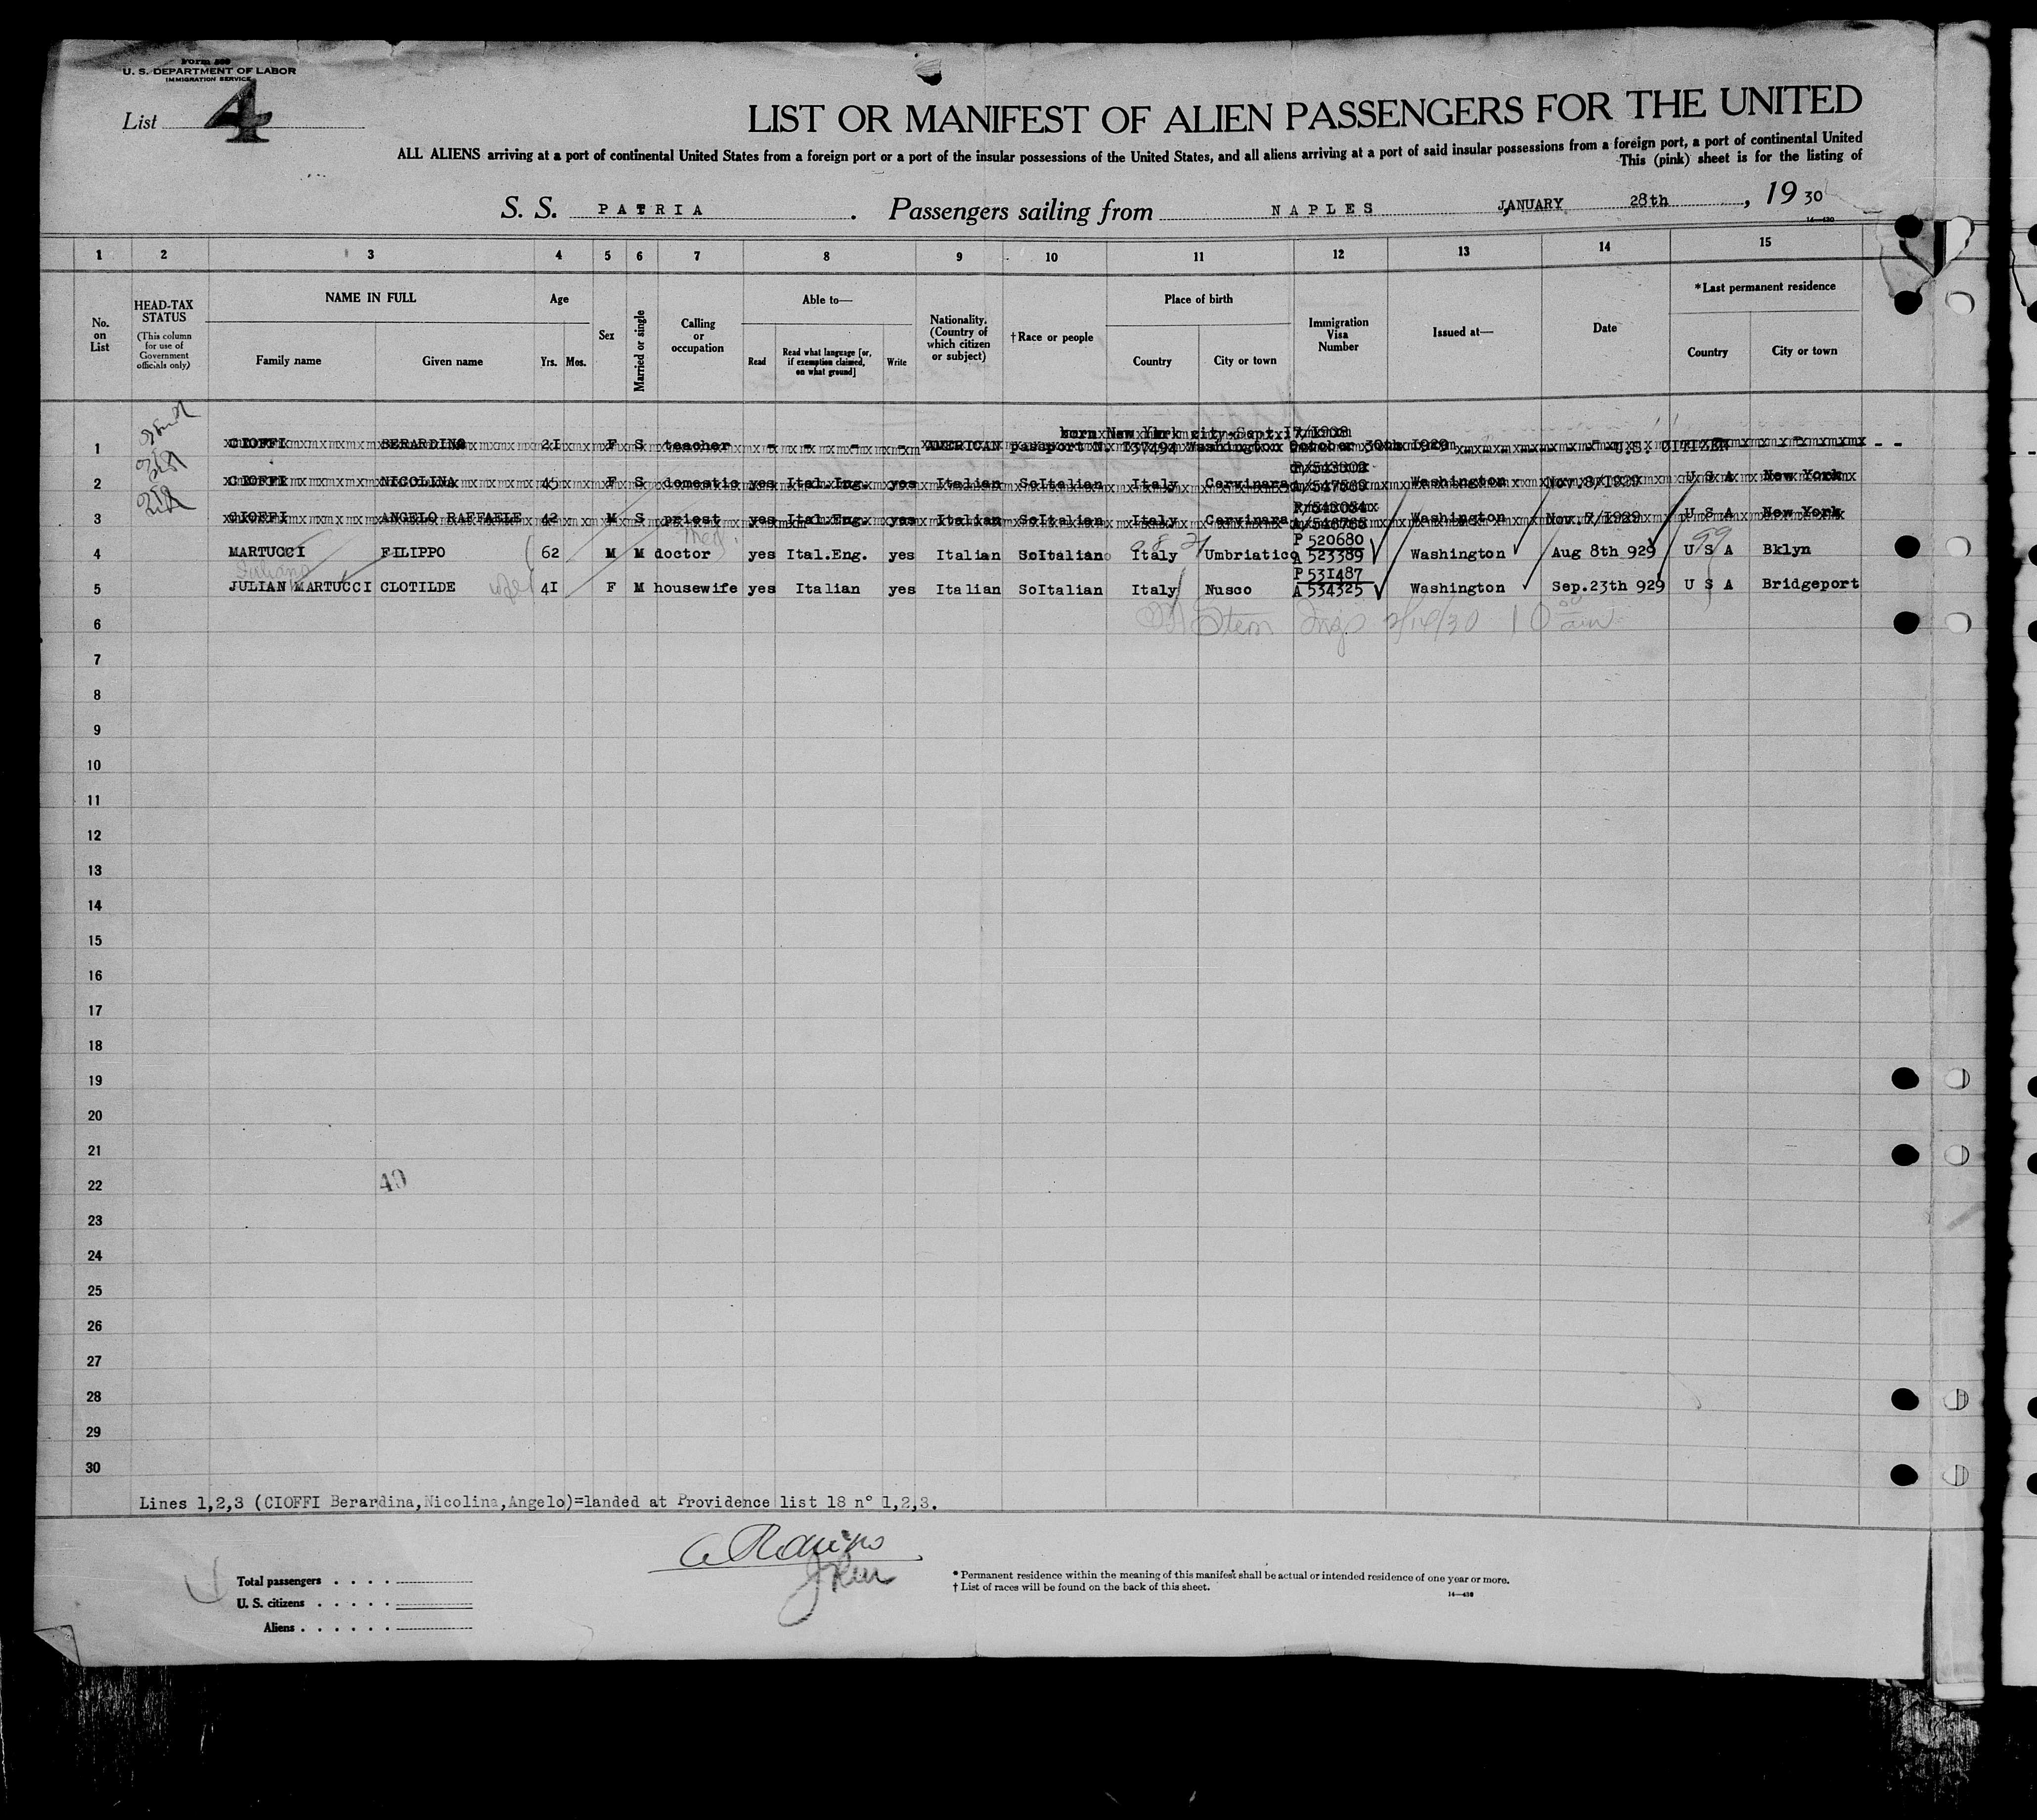 Form 500
U. S. DEPARTMENT OF LABOR
IMMIGRATION SERVICE
List 4
LIST OR MANIFEST OF ALIEN PASSENGERS FOR THE UNITED
ALL ALIENS arriving at a port of continental United States from a foreign port or a port of the insular possessions of the United States, and all aliens arriving at a port of said insular possessions from a foreign port, a port of continental United
This (pink) sheet is for the listing of
S. S. PATRIA . Passengers sailing from NAPLES , JANUARY 28th , 19 30
14—430
1 2 3 4 5 6 7 8 9 10 11 12 13 14 15
No. on List
HEAD-TAX STATUS
(This column for use of Government officials only)
NAME IN FULL
Family name
Given name
Age
Yrs. Mos.
Sex
Married or single
Calling or occupation
Able to—
Read
Read what language [or, if exemption claimed, on what ground]
Write
Nationality. (Country of which citizen or subject)
†Race or people
Place of birth
Country
City or town
Immigration Visa Number
Issued at—
Date
*Last permanent residence
Country
City or town
born New York city Sept. 17/1908
1 CIOFFI BERARDINA 21 F S teacher - - - - - - AMERICAN passport N. 137494 Washington October 30th 1929 U.S. CITIZEN - -
2 CIOFFI NICOLINA 45 F S domestic yes Ital.Eng. yes Italian SoItalian Italy Cervinara Washington Nov.8/1929 U S A New York
3 CIOFFI ANGELO RAFFAELE 42 M S priest yes Ital.Eng. yes Italian SoItalian Italy Cervinara Washington Nov.7/1929 U S A New York
Med.
99
P 520680
4 MARTUCCI FILIPPO 62 M M doctor yes Ital.Eng. yes Italian SoItalian Italy Umbriatico A 523389 Washington Aug 8th 929 U S A Bklyn
Juliano
P 531487
5 JULIAN MARTUCCI CLOTILDE wife 41 F M housewife yes Italian yes Italian SoItalian Italy Nusco A 534325 Washington Sep.23th 929 U S A Bridgeport
6 Stern Insp 2/10/30 10 am
7
8
9
10
11
12
13
14
15
16
17
18
19
20
21
22
40
23
24
25
26
27
28
29
30
Lines 1,2,3 (CIOFFI Berardina,Nicolina,Angelo)=landed at Providence list 18 n° 1,2,3.
Total passengers
U. S. citizens
Aliens
* Permanent residence within the meaning of this manifest shall be actual or intended residence of one year or more.
† List of races will be found on the back of this sheet.
14—430